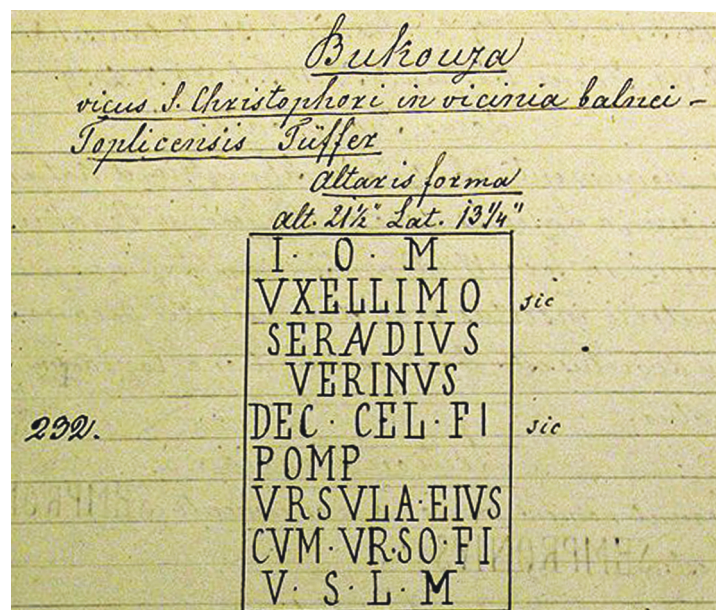 Bukovza
vicus S. Christophori in vicinia balnei -
Toplicensis Tüffer
Altaris forma
Alt. 21½" Lat. 13¼"
I · O · M
VXELLIMO sic
SERAVDIVS
VERINVS
232. DEC · CEL · FI sic
POMP
VRSVLA · EIVS
CVM · VRSO · FI
V · S · L · M